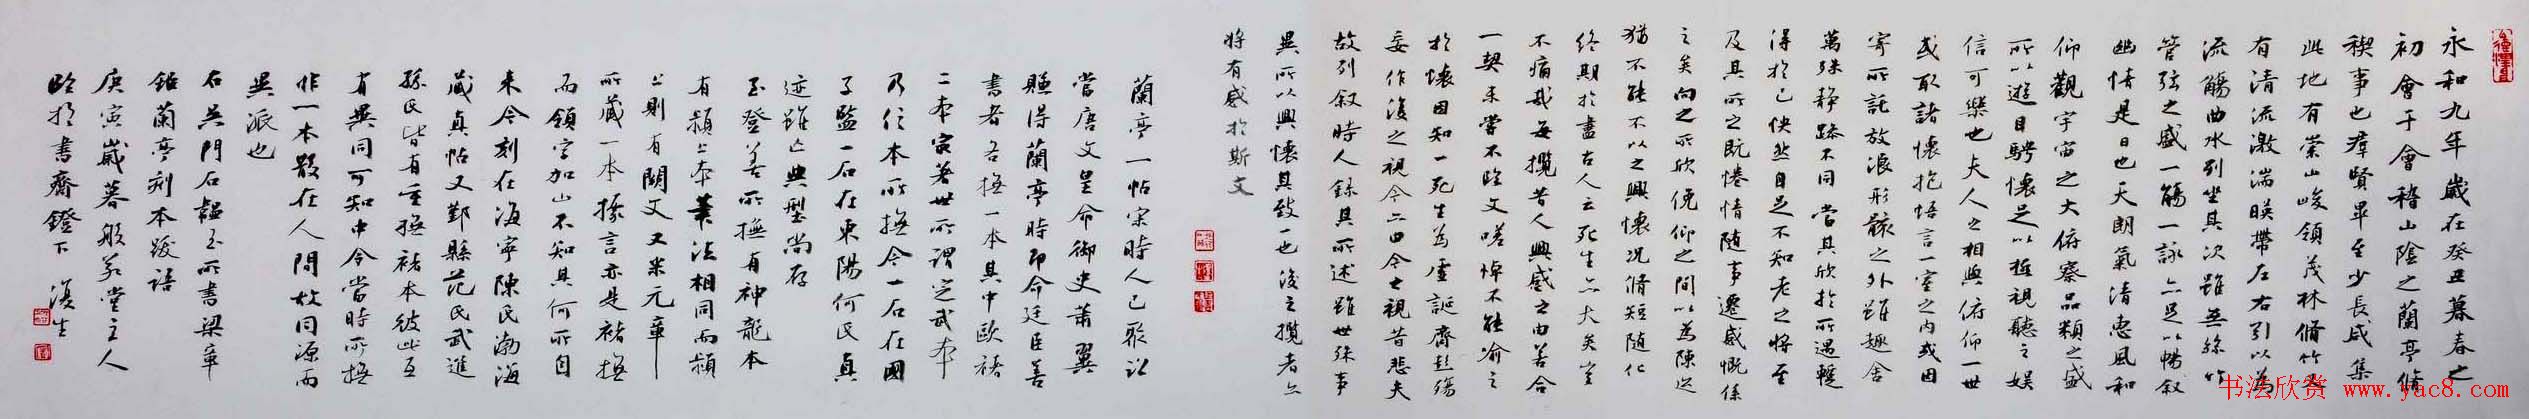 永和九年歲在癸丑暮春之
初會于會稽山陰之蘭亭脩
稧事也羣賢畢至少長咸集
此地有崇山峻領茂林脩竹又
有清流激湍暎帶左右引以為
流觴曲水列坐其次雖無絲竹
管弦之盛一觴一詠亦足以暢叙
幽情是日也天朗氣清惠風和
仰觀宇宙之大俯察品類之盛
所以遊目騁懷足以極視聽之娛
信可樂也夫人之相與俯仰一世
或取諸懷抱悟言一室之內或因
寄所託放浪形骸之外雖趣舍
萬殊静躁不同當其欣於所遇蹔
得於己快然自足不知老之將至
及其所之既惓情随事遷感慨係
之矣向之所欣俛仰之間以為陳迹
猶不能不以之興懷况脩短随化
終期於盡古人云死生亦大矣豈
不痛哉每攬昔人興感之由若合
一契未嘗不臨文嗟悼不能喻之
於懷固知一死生為虛誕齊彭殤
妄作後之視今亦由今之視昔悲夫
故列叙時人錄其所述雖世殊事
異所以興懷其致一也後之攬者亦
將有感於斯文
蘭亭一帖宋時人已聚訟
當唐文皇命御史蕭翼
賺得蘭亭時即命廷臣善
書者各撫一本其中歐褚
二本最著世所謂定武本
乃歐本所撫今一石在國
子監一石在東陽何氏真
迹雖亡典型尚存
至登善所撫有神龍本
有潁上本筆法相同而潁
上則有闕文又米元章
所藏一本據言亦是褚撫
而領字加山不知其何所自
來今刻在海寧陳氏渤海
藏真帖又鄞縣范氏武進
孫氏皆有重撫褚本彼此互
有異同可知中令當時所撫
非一本散在人間故同源而
異派也
右吳門石韞玉所書梁章
鉅蘭亭刻本跋語
庚寅歲暮般若堂主人
臨於書齋鐙下 漢生
书法欣赏 www.yac8.com